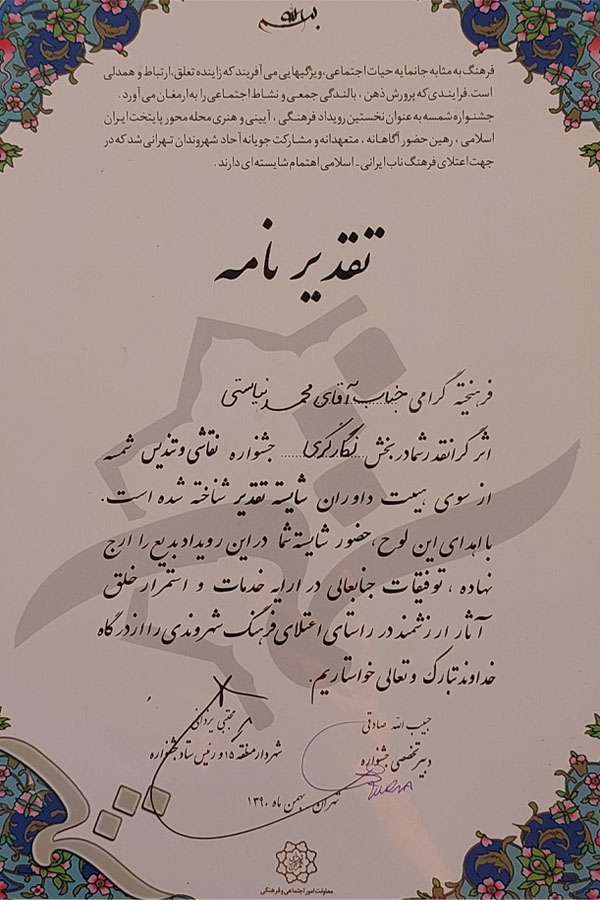 بسم الله
فرهنگ به مثابه جانمایه حیات اجتماعی، ویژگیهایی می آفریند که زاینده تعلق، ارتباط و همدلی
است. فرایندی که پرورش ذهن ، بالندگی جمعی و نشاط اجتماعی را به ارمغان می آورد .
جشنواره شمسه به عنوان نخستین رویداد فرهنگی ، آیینی و هنری محله محور پایتخت ایران
اسلامی ، رهین حضور آگاهانه ، متعهدانه و مشارکت جویانه آحاد شهروندان تهرانی شد که در
جهت اعتلای فرهنگ ناب ایرانی - اسلامی اهتمام شایسته ای دارند .
تقدیر نامه
فرهیخته گرامی جناب آقای محمد نیاستی
اثر گرانقدر شما در بخش نگارگری جشنواره نقاشی و تندیس شمسه
از سوی هیئت داوران شایسته تقدیر شناخته شده است.
با اهدای این لوح ، حضور شایسته شما در این رویداد بدیع را ارج
نهاده ، توفیقات جنابعالی در ارایه خدمات و استمرار خلق
آثار ارزشمند در راستای اعتلای فرهنگ شهروندی را از درگاه
خداوند تبارک و تعالی خواستاریم.
حبیب الله صادقی
دبیر تخصصی جشنواره
مجتبی یزدانی
شهردار منطقه ۱۵ و رئیس ستاد جشنواره
تهران بهمن ماه ۱۳۹۰
معاونت امور اجتماعی و فرهنگی